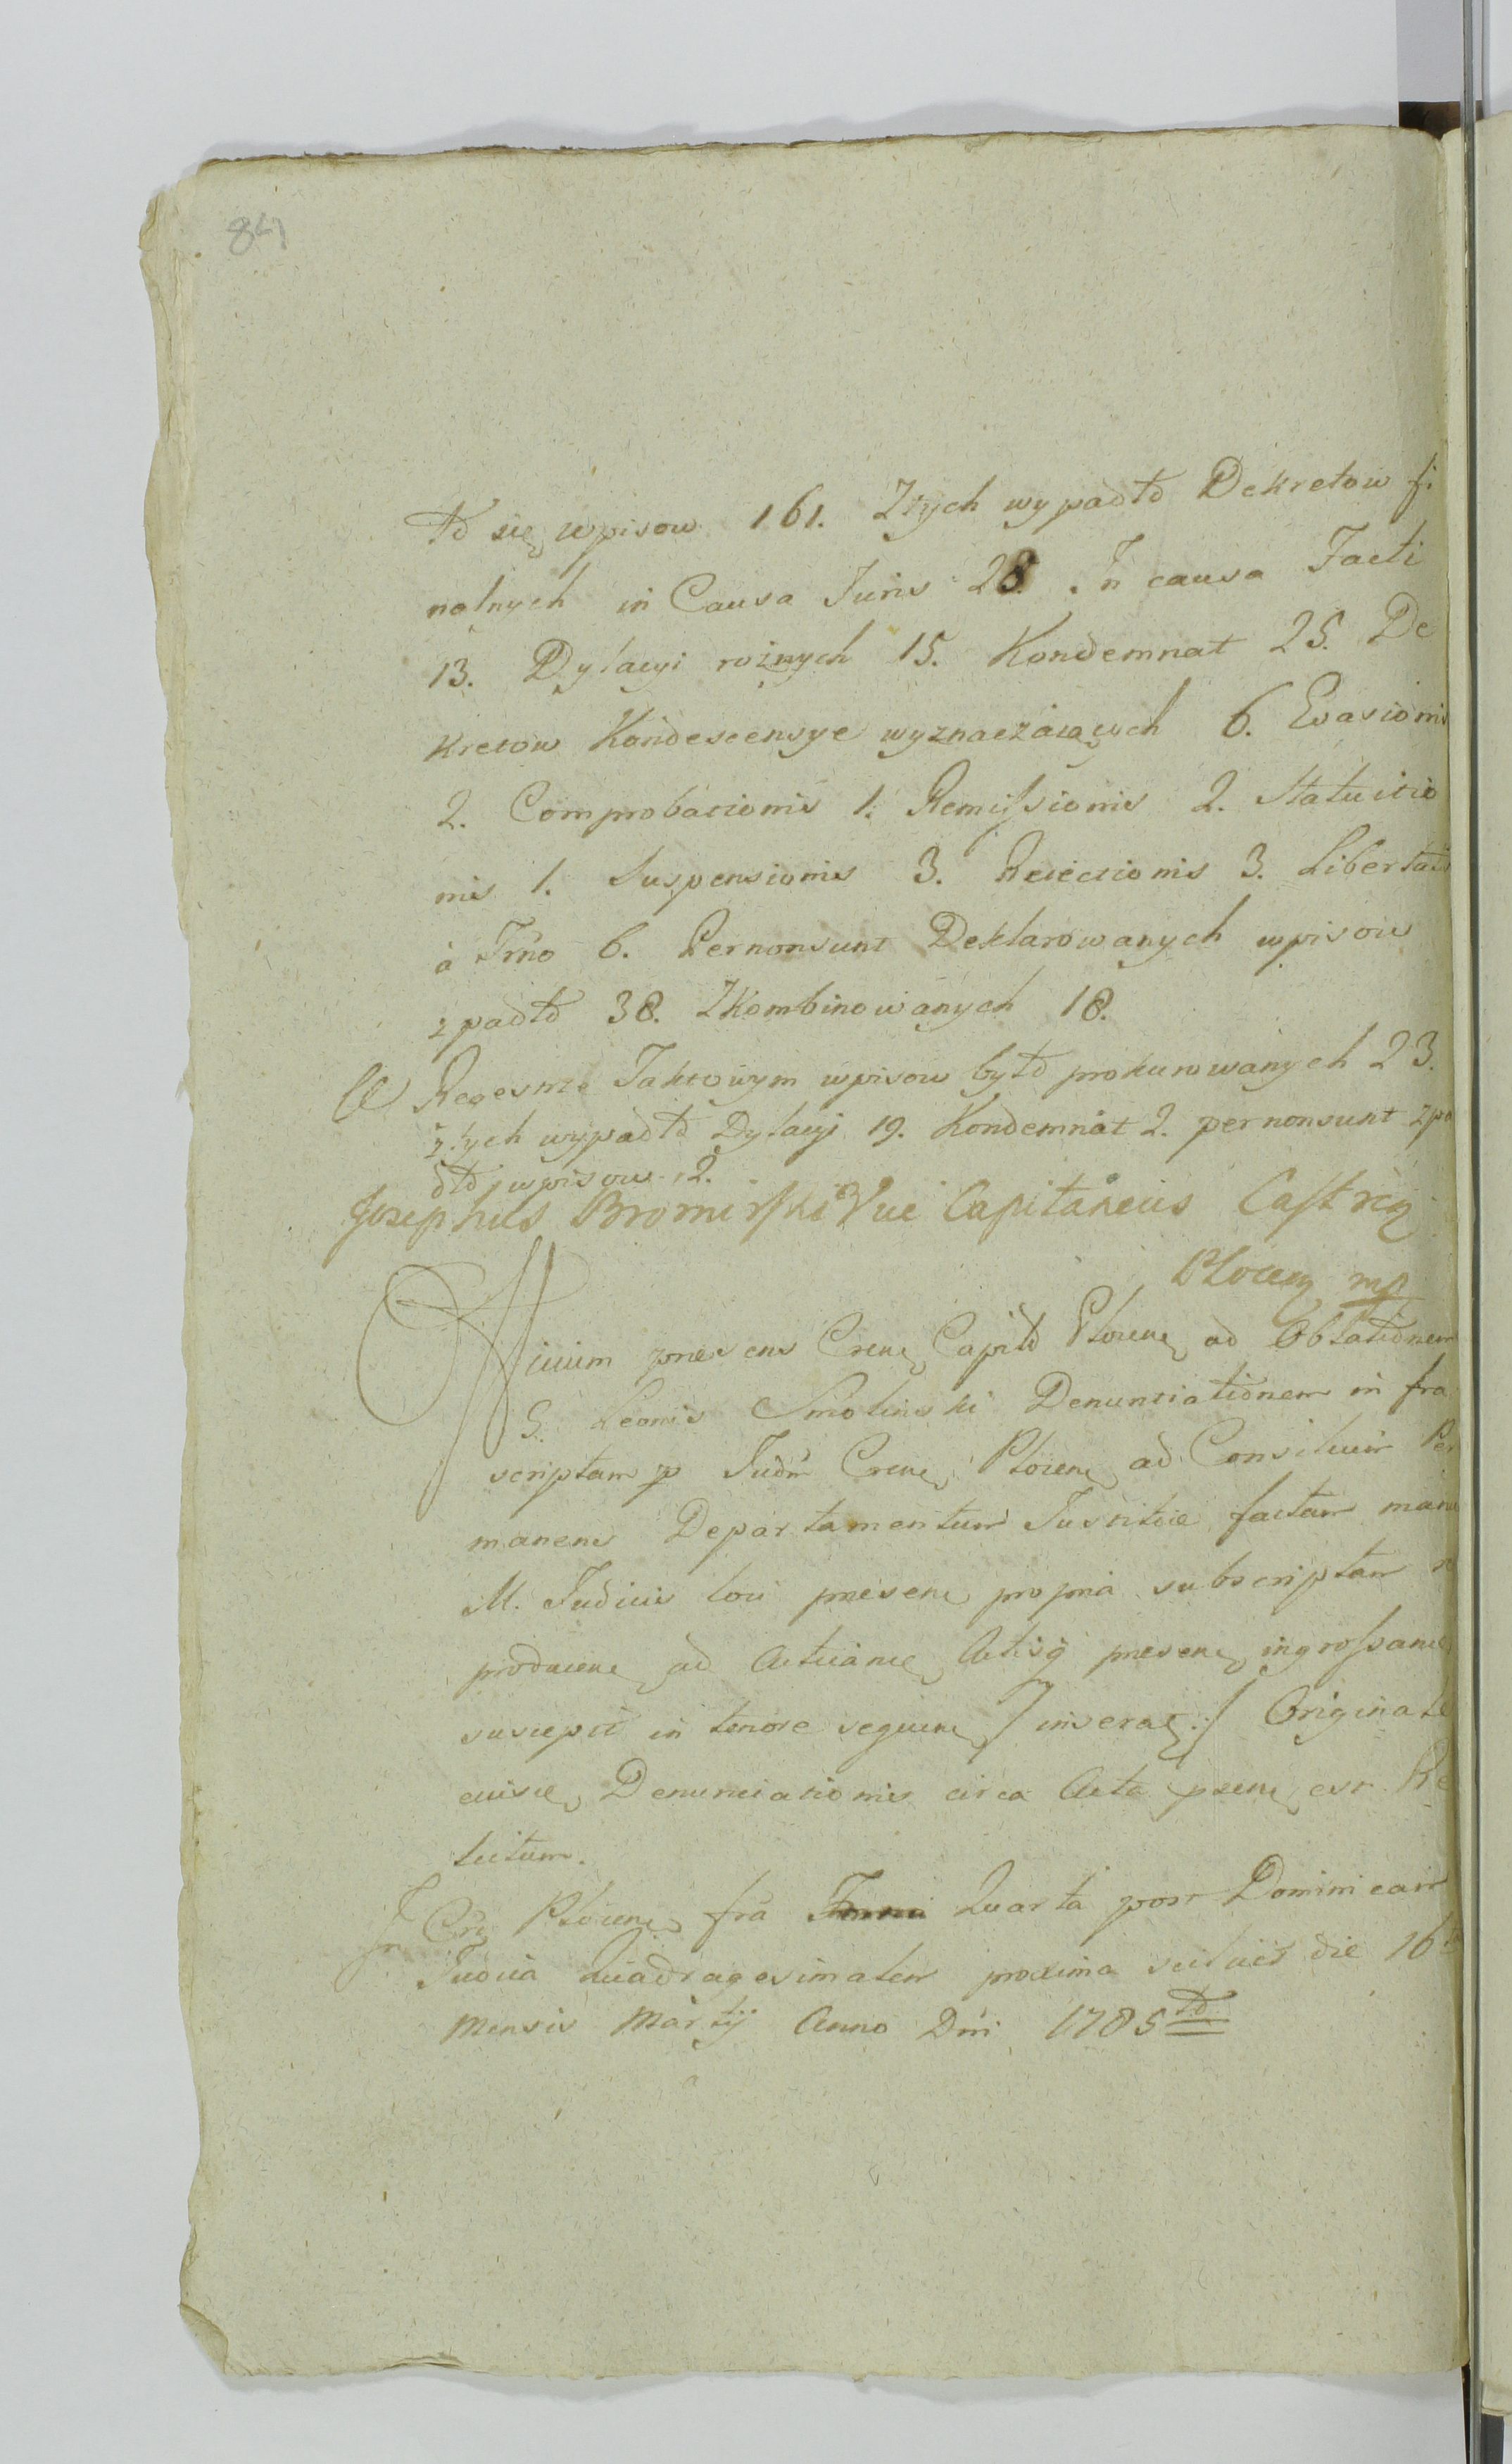 84
ło się wpisow 161. Ztych wypadło Dekretow fi
nalnych in Causa Juris 28. In causa Facti
13. Dylacyi rożnych 15. Kondemnat 25. De
kretow Kondescensye wyznaczaiących 6. Evasionis
2. Comprobationis 1. Remissionis 2. Statuitio
nis 1. Suspensionis 3. Reiectionis 3. Libertatis
à Trno 6. Pernonsunt Deklarowanych wpisow
spadło 38. Zkombinowanych 18.
W Regestrze Taktowym wpisow było prokurowanych 23.
z tych wypadło Dylacyi 19. Kondemnat 2. pernonsunt spa
dło wpisow 2.
Josephus Bromirski Vice Capitaneus Castren
Plocen mp
Officium praesens Crense Capitle Plocense ad Oblationem
G. Leonis Smolinski Denunciationem infra
scriptam p Judm Crense Plocense ad Consilium Per
manens Departamentum Justitiae factam manu
M. Judicis loci praesen propria subscriptam
producen ad acticand Actisq praesen ingrossand
suscepit in tenore sequen / inserat: / Originale
cuius Denunciationis circa Acta praesen est Re
lictum.
In Cro Plocen fra Quarta post Dominicam
Judica Quadragesimalem proxima scilicet die 16
Mensis Martij Anno Dni 1785to